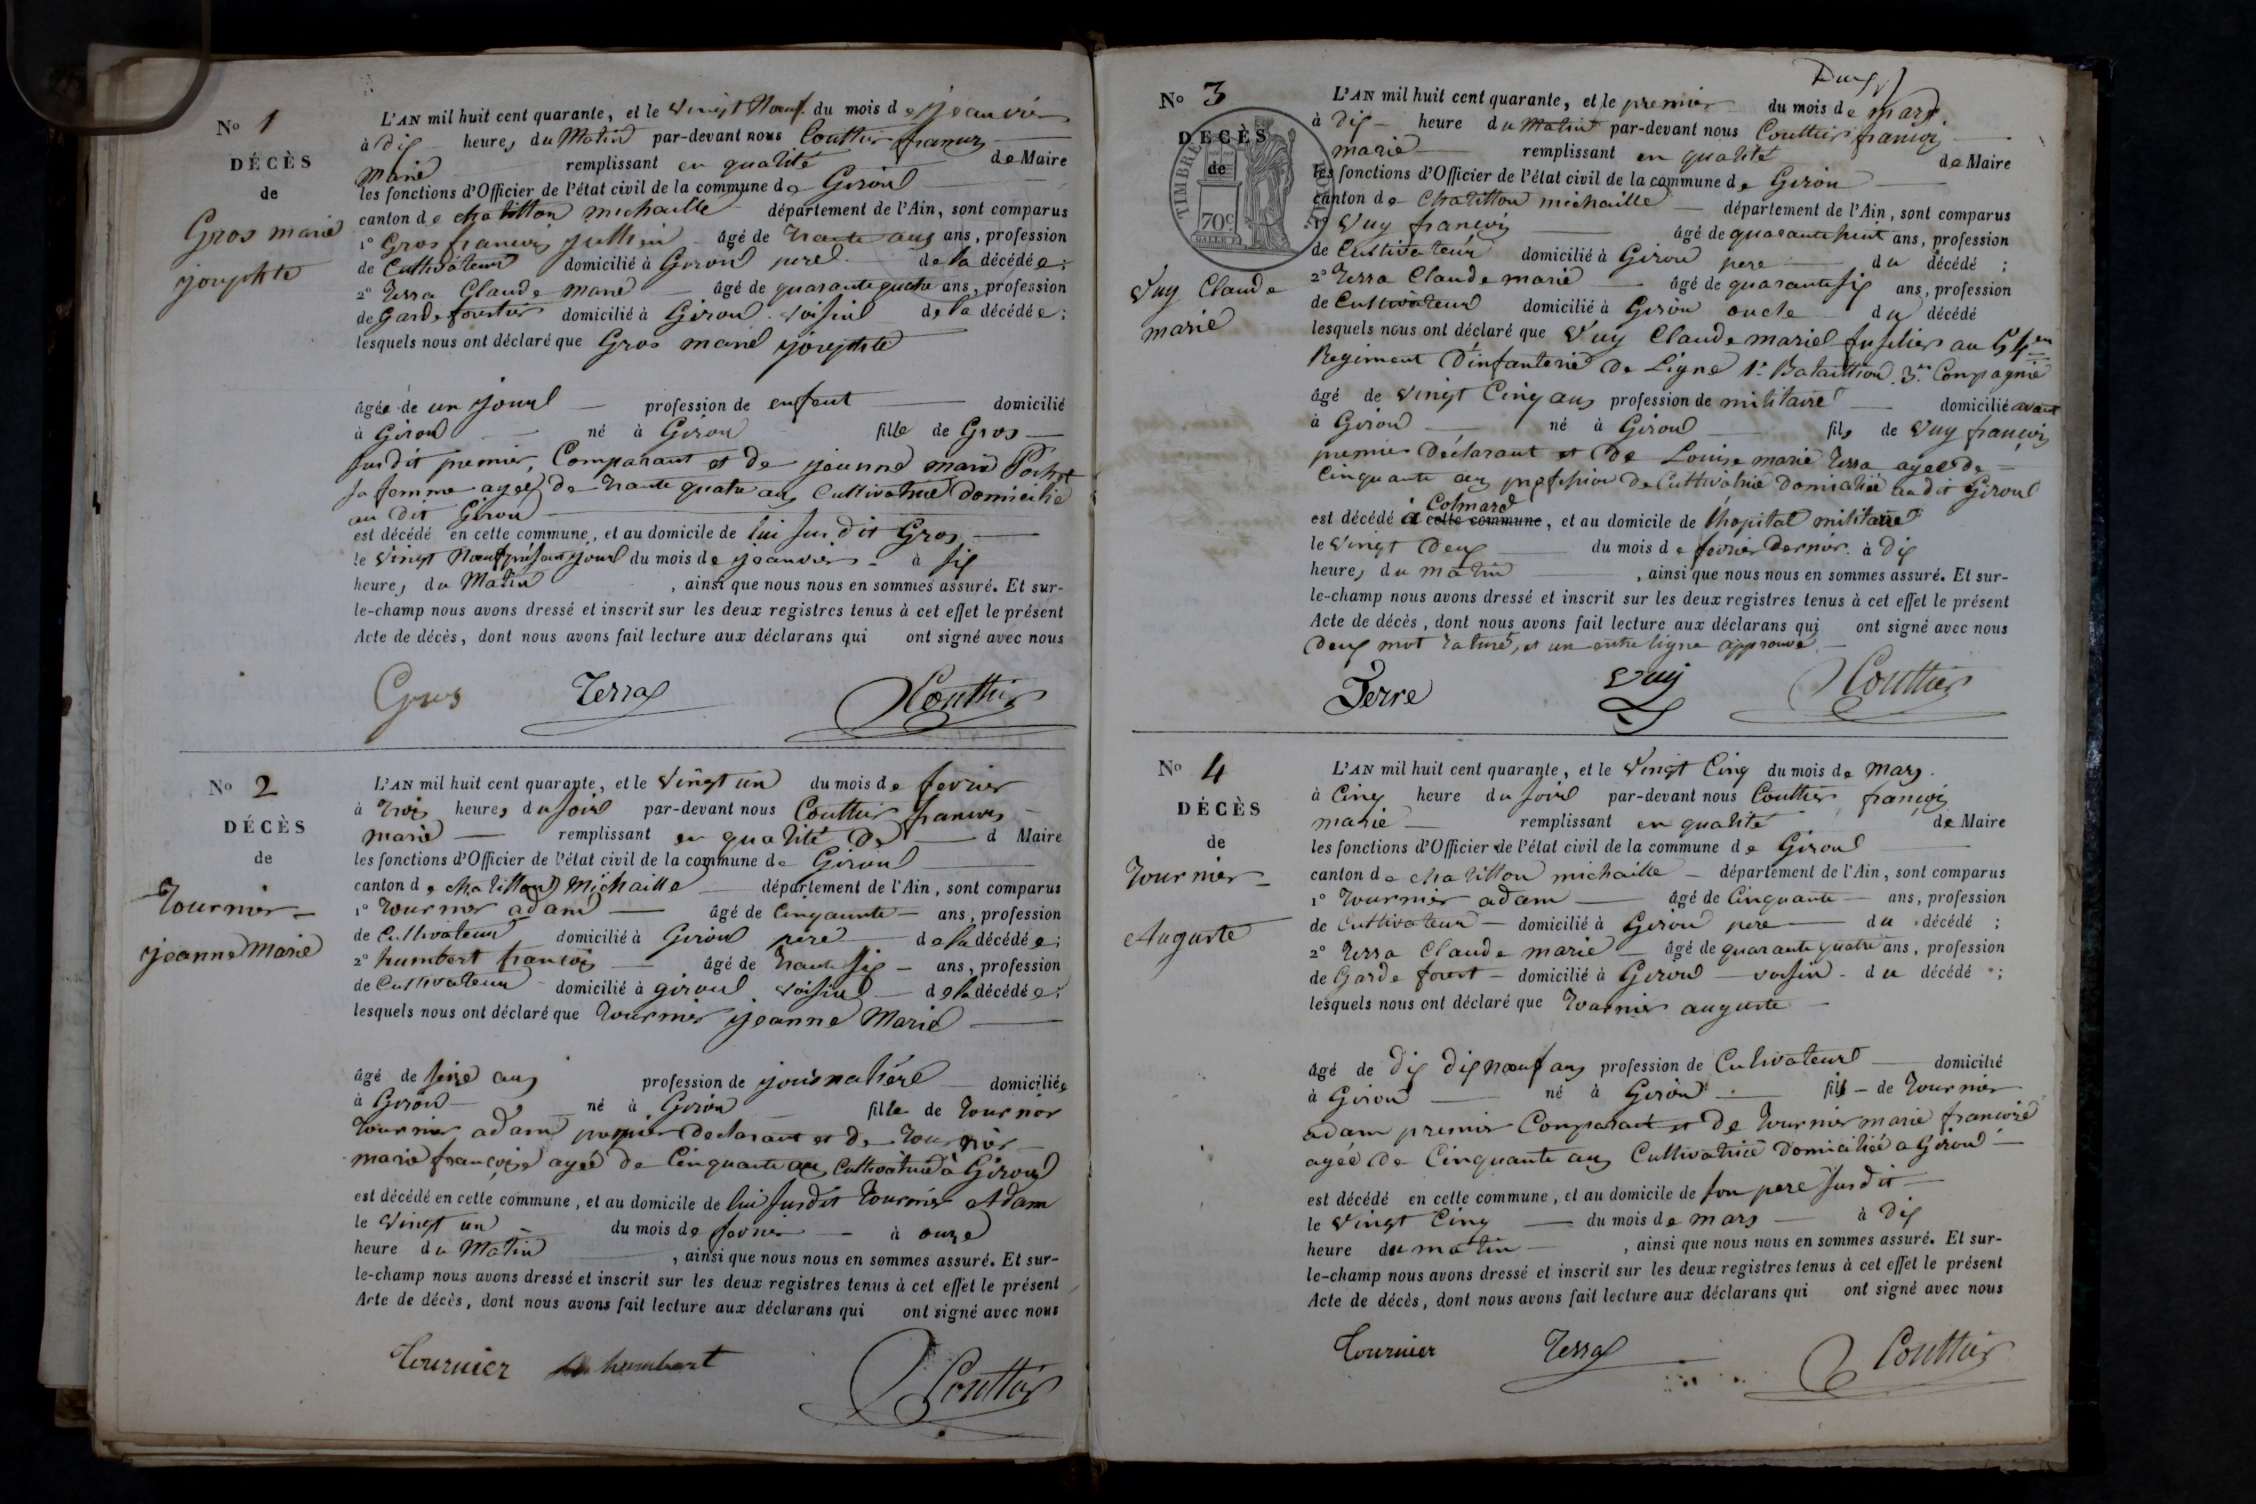 No 1
DÉCÈS
de
Gros marie
josephte
L'AN mil huit cent quarante, et le vingt Noeuf du mois de jeanvier
à dix heures du Matin par-devant nous Couttier francois
marie remplissant en qualité de Maire
les fonctions d'Officier de l'état civil de la commune de Giron
canton de chatillon michaille département de l'Ain, sont comparus
1° Gros francois jullien âgé de trante ans ans, profession
de Cultivateur domicilié à Giron pere de la décédée;
2° Terra Claude marie âgé de quarante quatre ans, profession
de Garde forestier domicilié à Giron voisin de la décédée;
lesquels nous ont déclaré que Gros marie josephte
âgée de un jour profession de enfant domicilié
à Giron né à Giron fille de Gros
susdit premier, Comparant et de jeanne marie Pochet
sa femme agée de trante quatre ans Cultivatrice domicilié
au dit Giron
est décédé en cette commune, et au domicile de lui susdit Gros
le vingt Noeuf présent jour du mois de jeanvier à six
heures du Matin, ainsi que nous nous en sommes assuré. Et sur-
le-champ nous avons dressé et inscrit sur les deux registres tenus à cet effet le présent
Acte de décès, dont nous avons fait lecture aux déclarans qui ont signé avec nous
Gros Terra Couttier
No 2
DÉCÈS
de
Tournier
jeanne Marie
L'AN mil huit cent quarante, et le vingt un du mois de fevrier
à trois heures du soir par-devant nous Couttier francois
marie remplissant en qualité de d Maire
les fonctions d'Officier de l'état civil de la commune de Giron
canton de chatillon Michaille département de l'Ain, sont comparus
1° Tournier adam âgé de Cinquante ans, profession
de Cultivateur domicilié à Giron pere de la décédée;
2° humbert francois âgé de trante six ans, profession
de Cultivateur domicilié à giron voisin de la décédée;
lesquels nous ont déclaré que Tournier jeanne Marie
âgé de seize ans profession de journalière domiciliée
à Giron né à Giron fille de Tournier
Tournier adam premier Declarant et de Tournier
marie françoise agée de Cinquante ans, Cultivatrice à Giron
est décédé en cette commune, et au domicile de lui susdit Tournier Adam
le vingt un du mois de fevrier à onze
heure du Matin, ainsi que nous nous en sommes assuré. Et sur-
le-champ nous avons dressé et inscrit sur les deux registres tenus à cet effet le présent
Acte de décès, dont nous avons fait lecture aux déclarans qui ont signé avec nous
Tournier humbert Couttier
Deux
No 3
DÉCÈS
de
TIMBRE ROYAL
70c
Vuy Claude
marie
L'AN mil huit cent quarante, et le premier du mois de mars
à dix heure du Matin par-devant nous Couttier françois
marie remplissant en qualité de Maire
les fonctions d'Officier de l'état civil de la commune de Giron
canton de Chatillon michaille département de l'Ain, sont comparus
1° Vuy françois âgé de quarante huit ans, profession
de Cultivateur domicilié à Giron pere du décédé;
2° Terra Claude marie âgé de quarante six ans, profession
de Cultivateur domicilié à Giron oncle du décédé
lesquels nous ont déclaré que Vuy Claude marie fusilier au 54em
Regiment d'infanterie de Ligne 1r Bataillion 3me Conpagnie
âgé de vingt Cinq ans profession de militaire domicilié avant
à Giron né à Giron fils de Vuy françois
premier Déclarant et de Louise marie Terra agée de
Cinquante ans profession de Cultivatrice domicilié au dit Giron
Colmard
est décédé à cette commune, et au domicile de l'hopital militaire
le vingt deux du mois de fevrier dernier à dix
heures du matin, ainsi que nous nous en sommes assuré. Et sur-
le-champ nous avons dressé et inscrit sur les deux registres tenus à cet effet le présent
Acte de décès, dont nous avons fait lecture aux déclarans qui ont signé avec nous
deux mot raturé, et un entre ligne approuvé
Terre Vuy Couttier
No 4
DÉCÈS
de
Tournier
Auguste
L'AN mil huit cent quarante, et le vingt Cinq du mois de Mars
à Cinq heure du soir par-devant nous Couttier françois
marie remplissant en qualité de Maire
les fonctions d'Officier de l'état civil de la commune de Giron
canton de chatillon michaille département de l'Ain, sont comparus
1° Tournier adam âgé de Cinquante ans, profession
de Cultivateur domicilié à Giron pere du décédé;
2° Terra Claude marie âgé de quarante quatre ans, profession
de Garde forest domicilié à Giron voisin du décédé;
lesquels nous ont déclaré que Tournier auguste
âgé de dix dix noeuf ans profession de Cultivateur domicilié
à Giron né à Giron fils de Tournier
adam premier Comparant et de Tournier marie francoise
agée de Cinquante ans Cultivatrice domiciliée a Giron
est décédé en cette commune, et au domicile de son pere susdit
le vingt Cinq du mois de mars à dix
heure du matin, ainsi que nous nous en sommes assuré. Et sur-
le-champ nous avons dressé et inscrit sur les deux registres tenus à cet effet le présent
Acte de décès, dont nous avons fait lecture aux déclarans qui ont signé avec nous
Tournier Terra Couttier